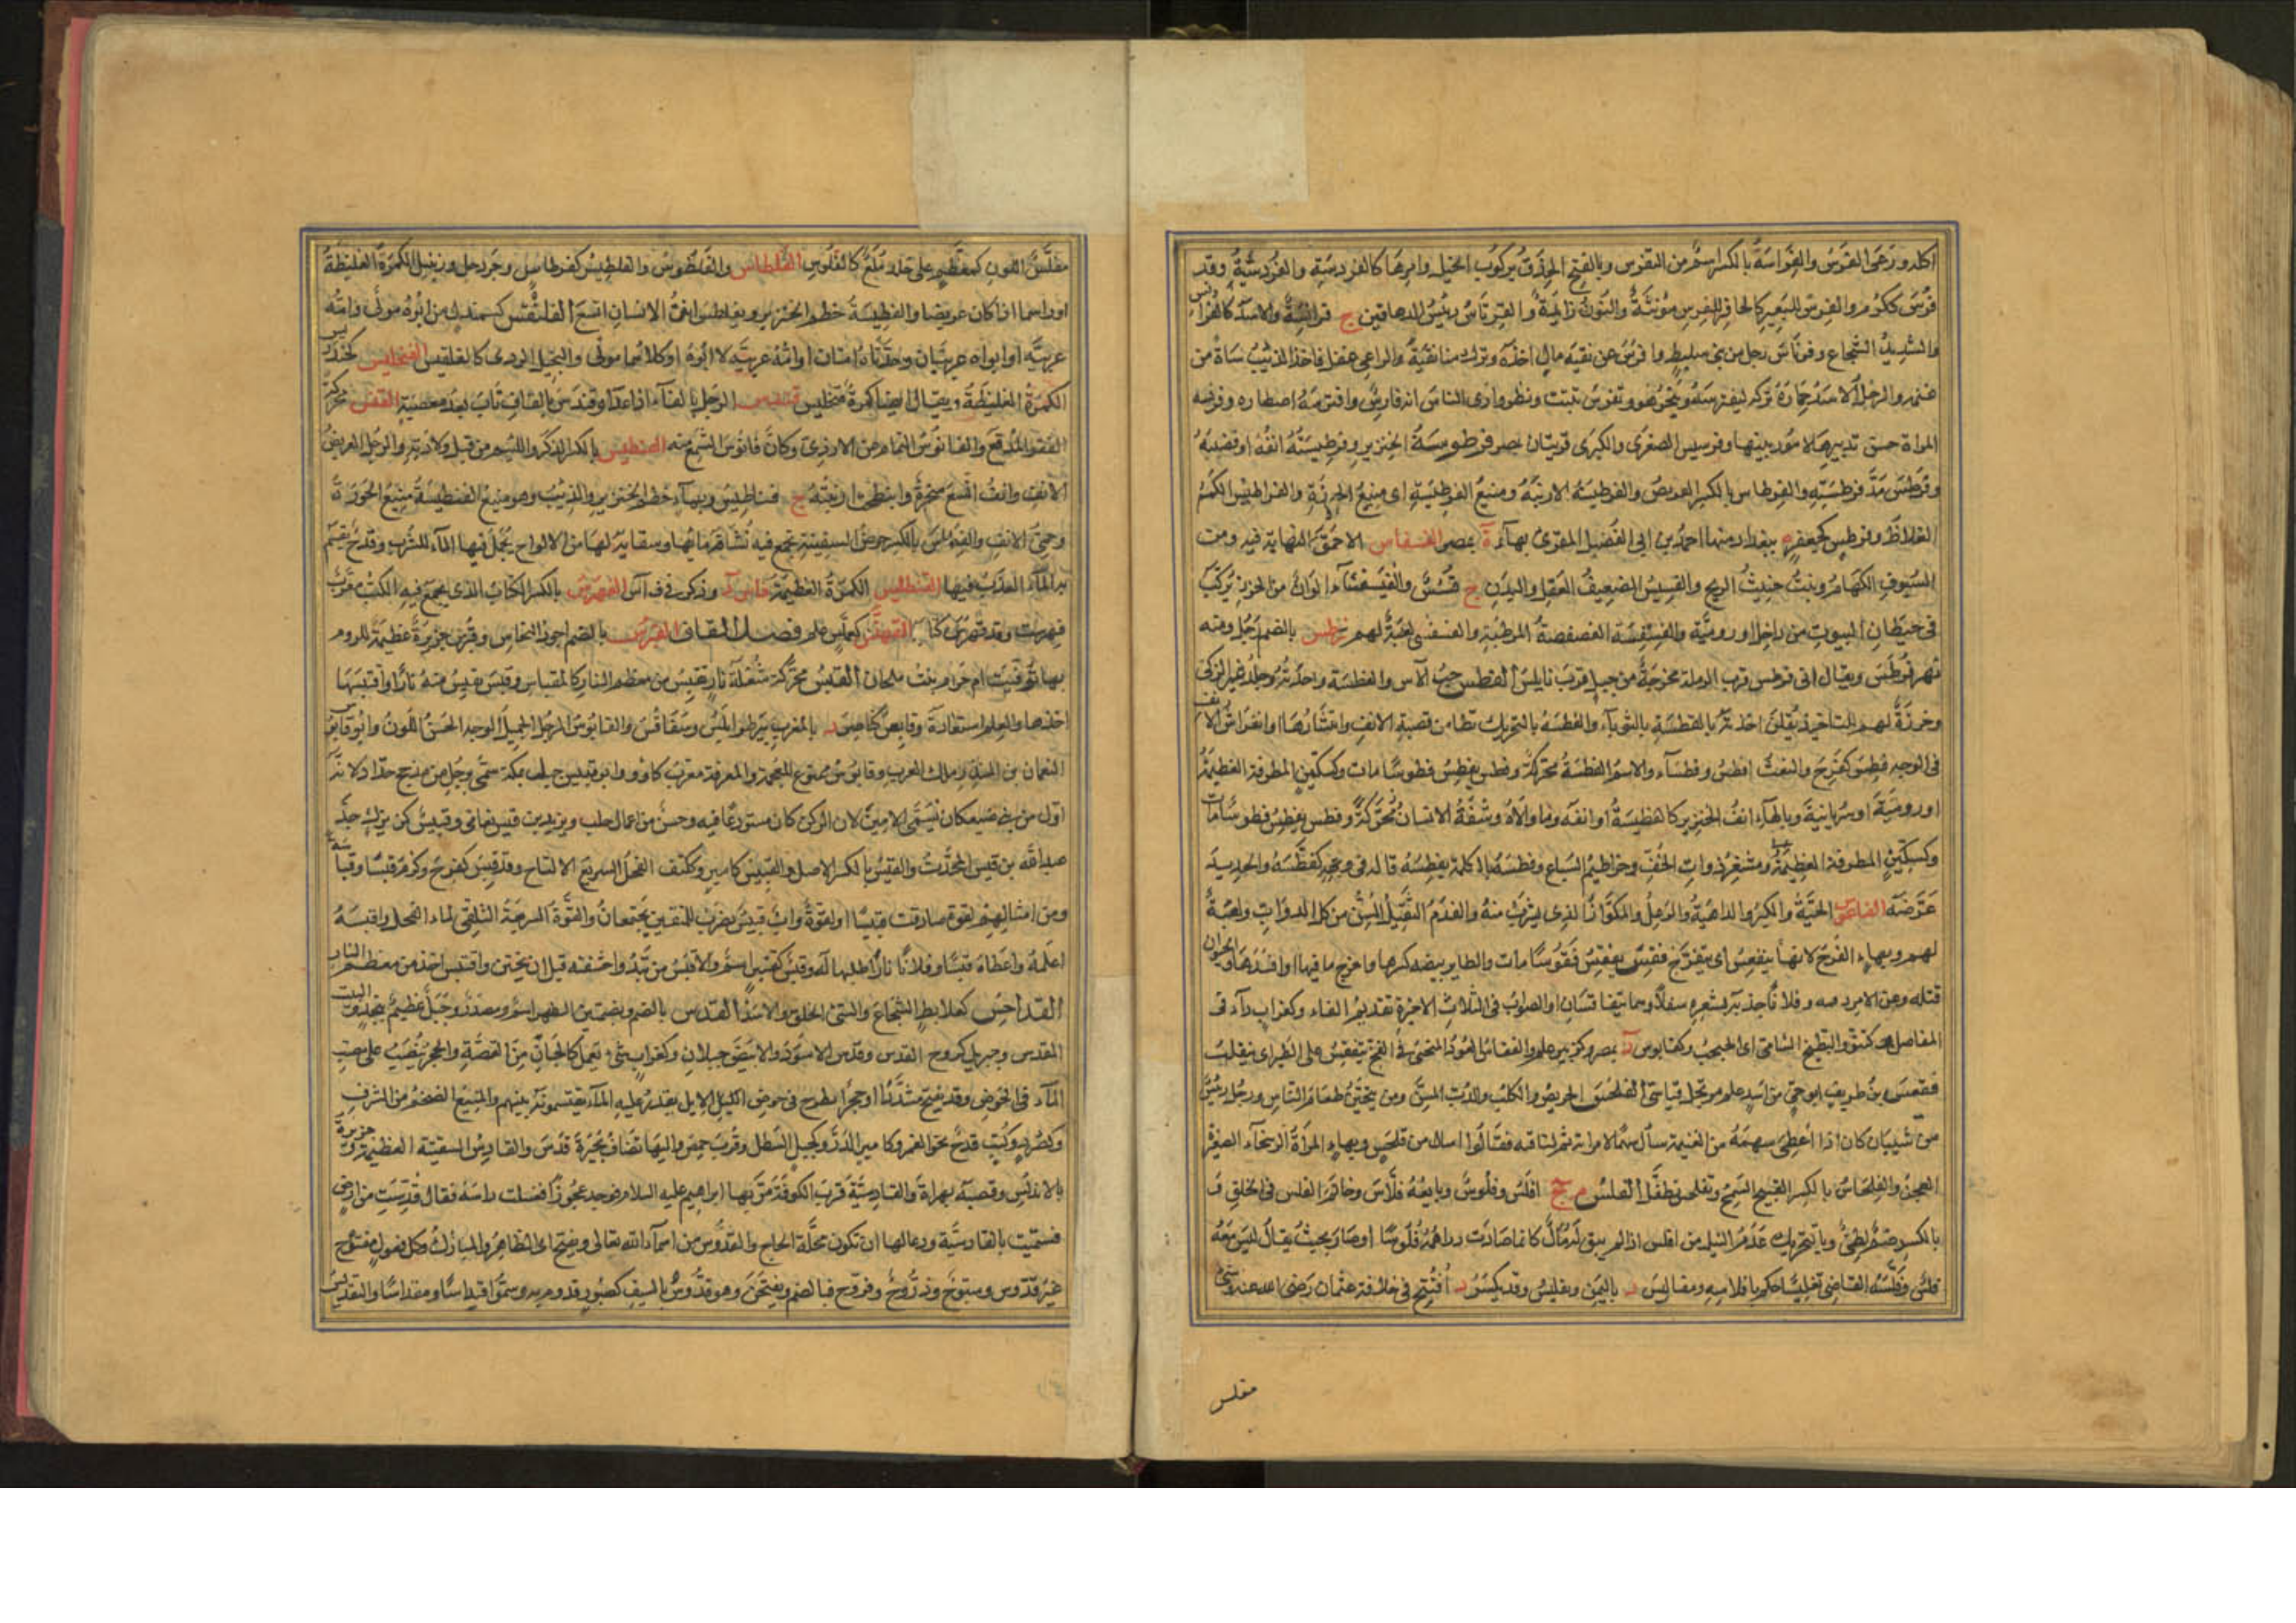 اكله ورعى الفرس والفراسة بالكسر اسم من التفرس وبالفتح الحذق بركوب الخيل وامرها كالفروسة والفروسية وقد
فرس ككرم والفرس للبعير كالحافر للفرس مؤنثة والنون زائدة والفرناس رئيس الدهاقين ج فرانسة والاسد كالفرانس
والشديد الشجاع وفرناس رجل من بنى سليط وافرس عن بقية مال اخذه وترك منه بقية والراعى غفل فاخذ الذئب شاة من
غنمه والرجل الاسد حماره تركه ليفترسه وينجو هو وتفرس تثبت ونظر وارى الناس انه فارس وافترسه اصطاده وفرنسة
المراة حسن تدبيرها لامور بيتها وفرسيس الصغرى والكبرى قريتان بمصر فرطوسة الخنزير وفرطيسته انفه او قضيبه
وفرطس مد فرطيسته والفرطاس بالكسر العريض والفرطيسة الارنبة ومنيع الفرطيسة اى منيع الحوزة والفراطيس الكمر
الغلاظ وفرطس كجعفر ة ببغداد منها احمد بن ابى الفضل المقرى بهاء ة بمصر الفسفاس الاحمق النهاية فيه ومن
السيوف الكهام ونبت خبيث الريح والفسيس الضعيف العقل والبدن ج فسس والفسيفساء الوان من الخرز يركب
فى حيطان البيوت من داخل او رومية والفسفسة الفصفصة الرطبة والفسفسى لعبة لهم فطرس بالضم رجل ومنه
نهر فطرس ويقال ابى فطرس قرب الرملة مخرجه من جبل قرب نابلس الفطس حب الآس والفطسة واحدته وجلد غير الذكى
وخرزة لهم للتاخيذ يقلن اخذته بالفطسة بالثوباء والعطسة بالتحريك تطامن قصبة الانف وانتشارها او انفراش الانف
فى الوجه فطس كفرح والنعت افطس وفطساء والاسم الفطسة محركة وفطس يفطس فطوسا مات وكسكين المطرقة العظيمة
او رومية او سريانية وبالهاء انف الخنزير كالفطيسة او انفه وما والاه وشفة الانسان محركة وفطس يفطس فطوسا مات
وكسكين المطرقة العظيمة ومشفر ذوات الخف وخراطيم السباع وفطسه بالكلمة يفطسه قاله فى وجهه كفطسه والحديد
عرضه الفاعوس الحية والكمر والداهية والوعل والكراز الذى يشرب منه والفدم الثقيل المسن من كل الدواب ولعبة
لهم وبهاء الفرج لانها ينفعس اى ينفرج فقس يفقس فقوسا مات والطاير بيضه كسرها واخرج ما فيها او افسدها والحيوان
قتله وعن الامر دسه وفلانا جذبه بشعره سفلا وهما يتفاقسان او الصواب فى الثلاث الاخيرة تقديم القاف وكغراب داء فى
المفاصل وكتنور البطيخ الشامى اى الحبحب وكقابوس د بمصر وكزبير علم والفقاس العود المنحنى فى الفخ ينفقس على الطير اى ينقلب
فقعس بن طريف ابو حى من اسد علم مرتجل قياسى الفلحس الحريص والكلب والدب المسن ومن يتحين طعام الناس ورجل رئيس
من شيبان كان اذا اعطى سهمه من الغنيمة سأل سهما لامراته ثم لناقته فقالوا اسال من فلحس وبهاء المراة الرسحاء الصغيرة
العجز والفلحاس بالكسر القبيح السمج وتفلحس تطفل الفلس م ج افلس وفلوس وبايعه فلاس وخاتم الفلس فى الحلق ف
بالكسر صنم لطيئ وبالتحريك عدم النيل من افلس اذا لم يبق له مال كانما صارت دراهمه فلوسا او صار بحيث يقال ليس معه
فلس وفلسه القاضى تفليسا حكم بافلاسه ومفاليس د باليمن وتفليس وقد يكسر د افتتح فى خلافة عثمان رضى الله عنه وشئ
مفلس
مفلس اللون كمعظم على جلده لمع كالفلوس الفلطاس والفلطوس والفلطيس كقرطاس وجردحل وزنجبيل الكمرة الغليظة
او راسها اذا كان عريضا والفلطيسة خطم الخنزير وتفلطس انف الانسان اتسع الفلنقس كسمندل من ابوه مولى وامه
عربية او ابواه عربيان وجدتاه امتان او امه عربية لا ابوه او كلاهما مولى والبخيل الردى كالفلقس الفنجليس كخندريس
الكمرة الغليظة ويقال ايضا كمرة فنجليس فندس الرجل بالفاء اذا عدا وقندس بالقاف تاب بعد معصية الفنس محركة
الفقر المدقع والفانوس النمام عن الازدى وكان فانوس الشمع منه الفنطيس بالكسر الذكر واللئيم من قبل ولادته والرجل العريض
الانف وانف اتسع منخره وانبطحت ارنبته ج فناطيس وبهاء خطم الخنزير والذئب وهو منيع الفنطيسة منيع الحوزة
وحمى الانف والفنطاس بالكسر حوض السفينة تجمع فيه نشافة مائها وسقاية لها من الالواح يجعل فيها الماء للشرب وقدح يقسم
به الماء العذب فيها الفنطليس الكمرة العظيمة فاس د وذكر فى ف أ س الفهرس بالكسر الكتاب الذى يجمع فيه الكتب معرب
فهرست وقد فهرس كتابه الفهنس كعملس علم فصل القاف القبرس بالضم اجود النحاس وقبرس جزيرة عظيمة للروم
بها توفيت ام حرام بنت ملحان القبس محركة شعلة نار تقتبس من معظم النار كالمقباس وقبس يقبس منه نارا واقتبسها
اخذها والعلم استفادة وقابس كناصر د بالمغرب بين طرابلس وسفاقس والقابوس الرجل الجميل الوجه الحسن اللون وابو قابوس
النعمان بن المنذر ملك العرب وقابوس ممنوع للعجمة والمعرفة معرب كاووس وابو قبيس جبل بمكة سمى برجل من مذحج حداد لانه
اول من بنى فيه وكان يسمى الامين لان الركن كان مستودعا فيه وحصن من اعمال حلب ويزيد بن قبيس شامى وقبيس كزبير جد
عبد الله بن قيس المحدث والقبس بالكسر الاصل والقبيس كامير وكتف الفحل السريع الالقاح وقد قبس كفرح وكرم قبسا وقباسة
ومن امثالهم لقوة صادفت قبيسا او لقوة واب قبيس يضرب للمتفقين يجتمعان واللقوة السريعة التلقى لماء الفحل واقبسه
اعلمه واعطاه قبسا وفلانا نارا طلبها له وقنبس كقنبر اسم والاقبس من تبدو حشفته قبل ان يختن واقتبس اخذ من معظم النار
القداحس كعلابط الشجاع والسيئ الخلق والاسد القدس بالضم وبضمتين الطهر اسم ومصدر وجبل عظيم بنجد والبيت
المقدس وجبريل كروح القدس وقدس الاسود والابيض جبلان وكغراب شئ يعمل كالجمان من الفضة والحجر ينصب على مصب
الماء فى الحوض وقد يفتح مشددا او حجر يطرح فى حوض الابل يقدر عليه الماء يقتسمونه بينهم والمنيع الضخم من الشرف
وكصرد وكتب قدح نحو الغمر وكامير الدر وكجبل السطل وقرب حمص واليها تضاف بحيرة قدس والقادس السفينة العظيمة وجزيرة
بالاندلس وقصبة بهراة والقادسية قرب الكوفة مر بها ابراهيم عليه السلام فوجد عجوزا فغسلت راسه فقال قدست من ارض
فسميت بالقادسية ودعا لها ان تكون محلة الحاج والقدوس من اسماء الله تعالى ويفتح اى الطاهر او المبارك وكل فعول مفتوح
غير قدوس وسبوح وذروح وفروج فبالضم ويفتحن وهو قدوس بالسيف كصبور قدوم به وسموا قيداسا ومقداسا والتقديس